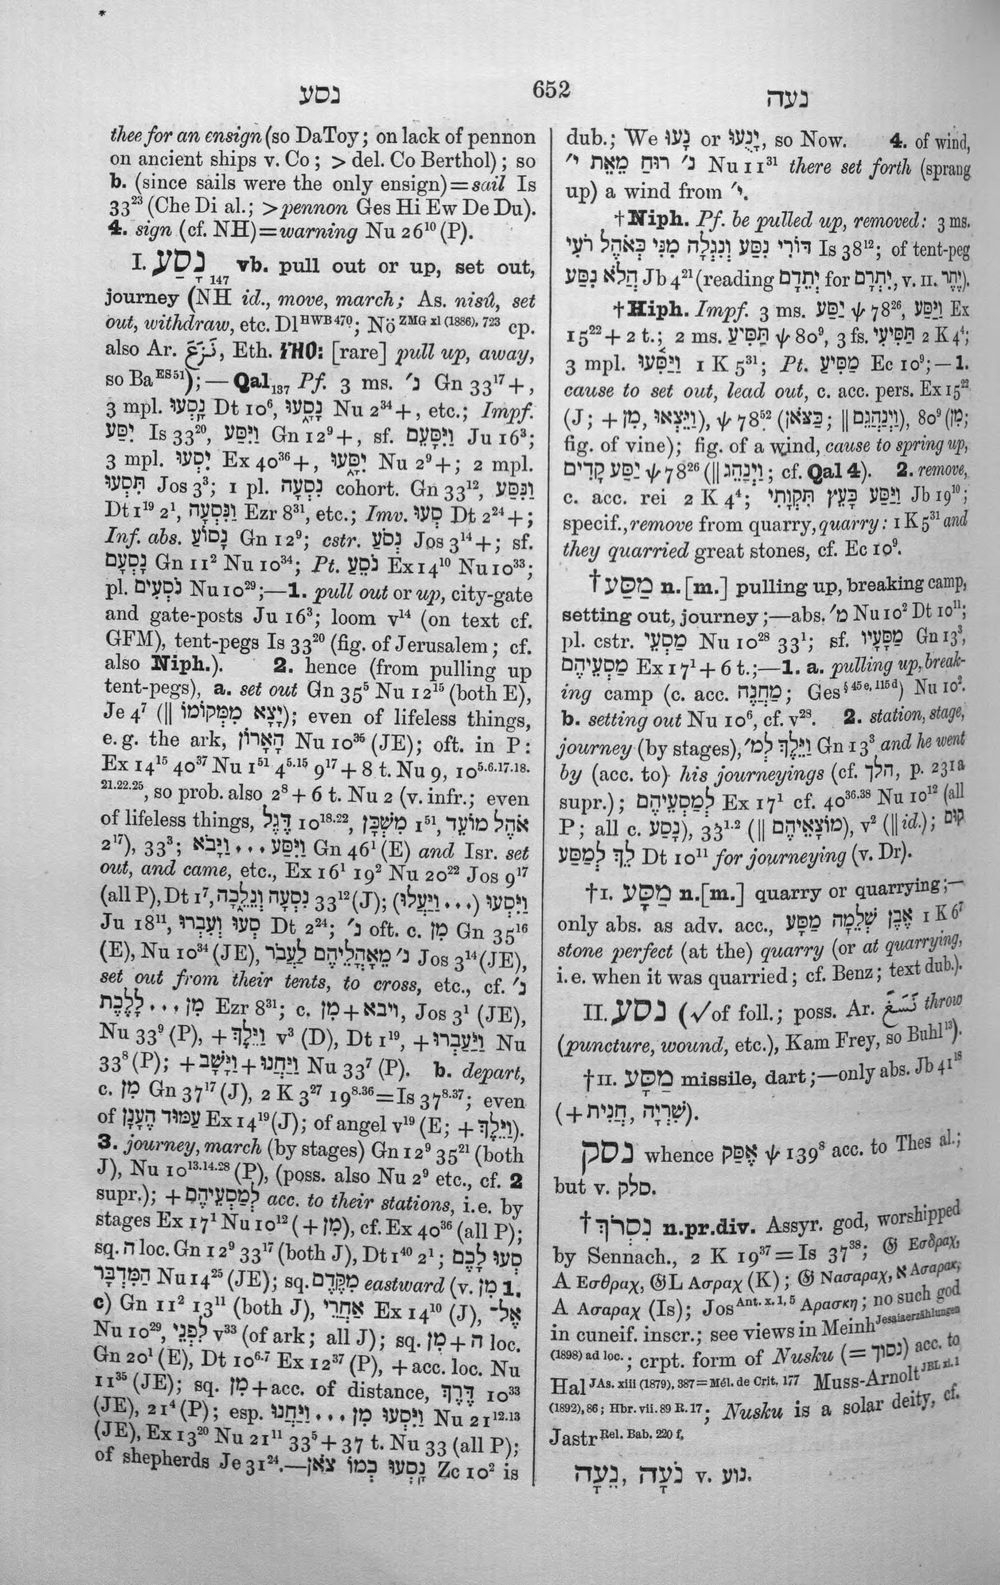 נסע
652
נעה
thee for an ensign (so DaToy; on lack of pennon
on ancient ships v. Co; > del. Co Berthol); so
b. (since sails were the only ensign)=sail Is
33²³ (Che Di al.; >pennon Ges Hi Ew De Du).
4. sign (cf. NH)=warning Nu 26¹⁰ (P).
I. נָסַע ₁₄₇ vb. pull out or up, set out,
journey (NH id., move, march; As. nisû, set
out, withdraw, etc. Dl HWB 470; Nö ZMG xl (1886), 723 cp.
also Ar. نَزَعَ, Eth. [rare] pull up, away,
so Ba ES 51);—Qal₁₃₇ Pf. 3 ms. נ׳ Gn 33¹⁷+,
3 mpl. נָסְעוּ Dt 10⁶, נָסָ֑עוּ Nu 2³⁴+, etc.; Impf.
יִסַּע Is 33²⁰, וַיִּסַּע Gn 12⁹+, sf. וַיִּסָּעֵם Ju 16³;
3 mpl. יִסְעוּ Ex 40³⁶+, יִסָּ֑עוּ Nu 2⁹+; 2 mpl.
תִּסְעוּ Jos 3³; 1 pl. נִסְעָה cohort. Gn 33¹², וַנִּסַּע
Dt 1¹⁹ 2¹, וַנִּסְעָה Ezr 8³¹, etc.; Imv. סְעוּ Dt 2²⁴+;
Inf. abs. נָסוֹעַ Gn 12⁹; cstr. נְסֹעַ Jos 3¹⁴+; sf.
נָסְעָם Gn 11² Nu 10³⁴; Pt. נֹסֵעַ Ex 14¹⁰ Nu 10³³;
pl. נֹסְעִים Nu 10²⁹;—1. pull out or up, city-gate
and gate-posts Ju 16³; loom v¹⁴ (on text cf.
GFM), tent-pegs Is 33²⁰ (fig. of Jerusalem; cf.
also Niph.). 2. hence (from pulling up
tent-pegs), a. set out Gn 35⁵ Nu 12¹⁵ (both E),
Je 4⁷ (‖ יָצָא מִמְּקוֹמוֹ); even of lifeless things,
e.g. the ark, הָאָרוֹן Nu 10³⁵ (JE); oft. in P:
Ex 14¹⁵ 40³⁷ Nu 1⁵¹ 4⁵·¹⁵ 9¹⁷ + 8 t. Nu 9, 10⁵·⁶·¹⁷·¹⁸·
²¹·²²·²⁵, so prob. also 2⁸ + 6 t. Nu 2 (v. infr.; even
of lifeless things, דֶּגֶל 10¹⁸·²², מִשְׁכָּן 1⁵¹, אֹהֶל מוֹעֵד
2¹⁷), 33³; וַיִּסַּע ... וַיָּבֹא Gn 46¹ (E) and Isr. set
out, and came, etc., Ex 16¹ 19² Nu 20²² Jos 9¹⁷
(all P), Dt 1⁷, נִסְעָה וְנֵלֵכָה 33¹² (J); (וַיִּסְעוּ (... וַיַּעֲלוּ
Ju 18¹¹, סְעוּ וְעִבְרוּ Dt 2²⁴; נ׳ oft. c. מִן Gn 35¹⁶
(E), Nu 10³⁴ (JE), נ׳ מֵאָהֳלֵיהֶם לַעֲבֹר Jos 3¹⁴ (JE),
set out from their tents, to cross, etc., cf. נ׳
מִן ... לָלֶכֶת Ezr 8³¹; c. מִן + ויבא, Jos 3¹ (JE),
Nu 33⁹ (P), + וַיֵּלֶךְ v³ (D), Dt 1¹⁹, + וַיַּעַבְרוּ Nu
33⁸ (P); + וַיָּשָׁב + וַיַּחֲנוּ Nu 33⁷ (P). b. depart,
c. מִן Gn 37¹⁷ (J), 2 K 3²⁷ 19⁸·³⁶=Is 37⁸·³⁷; even
of עַמּוּד הֶעָנָן Ex 14¹⁹ (J); of angel v¹⁹ (E; + וַיֵּלֶךְ).
3. journey, march (by stages) Gn 12⁹ 35²¹ (both
J), Nu 10¹³·¹⁴·²⁸ (P), (poss. also Nu 2⁹ etc., cf. 2
supr.); + לְמַסְעֵיהֶם acc. to their stations, i.e. by
stages Ex 17¹ Nu 10¹² (+ מִן), cf. Ex 40³⁶ (all P);
sq. ה loc. Gn 12⁹ 33¹⁷ (both J), Dt 1⁴⁰ 2¹; סְעוּ לָכֶם
הַמִּדְבָּר Nu 14²⁵ (JE); sq. מִקֶּדֶם eastward (v. מִן 1.
c) Gn 11² 13¹¹ (both J), אַחֲרֵי Ex 14¹⁰ (J), אֶל־
Nu 10²⁹, לִפְנֵי v³³ (of ark; all J); sq. מִן + ה loc.
Gn 20¹ (E), Dt 10⁶·⁷ Ex 12³⁷ (P), + acc. loc. Nu
11³⁵ (JE); sq. מִן + acc. of distance, דֶּרֶךְ 10³³
(JE), 21⁴ (P); esp. וַיִּסְעוּ מִן ... וַיַּחֲנוּ Nu 21¹²·¹³
(JE), Ex 13²⁰ Nu 21¹¹ 33⁵ + 37 t. Nu 33 (all P);
of shepherds Je 31²⁴.—נָסְעוּ כְמוֹ צֹאן Zc 10² is
dub.; We נָעוּ or יָנֻעוּ, so Now. 4. of wind,
רוּחַ מֵאֵת י׳ נ׳ Nu 11³¹ there set forth (sprang
up) a wind from י׳.
†Niph. Pf. be pulled up, removed: 3 ms.
דּוֹרִי נִסַּע וְנִגְלָה מִנִּי כְּאֹהֶל רֹעִי Is 38¹²; of tent-peg
הֲלֹא נִסַּע Jb 4²¹ (reading יְתֵדָם for יִתְרָם, v. II. יֶתֶר).
†Hiph. Impf. 3 ms. יַסַּע ψ 78²⁶, וַיַּסַּע Ex
15²² + 2 t.; 2 ms. תַּסִּיעַ ψ 80⁹, 3 fs. תַּסִּיעִי 2 K 4⁴;
3 mpl. וַיַּסִּעוּ 1 K 5³¹; Pt. מַסִּיעַ Ec 10⁹;—1.
cause to set out, lead out, c. acc. pers. Ex 15²²
(J; + מִן, וַיֵּצְאוּ), ψ 78⁵² (כַּצֹּאן; ‖ וַיְנַהֲגֵם), 80⁹ (מִן;
fig. of vine); fig. of a wind, cause to spring up,
יַסַּע קָדִים ψ 78²⁶ (‖ וַיְנַהֵג; cf. Qal 4). 2. remove,
c. acc. rei 2 K 4⁴; וַיַּסַּע כָּעֵץ תִּקְוָתִי Jb 19¹⁰;
specif., remove from quarry, quarry: 1 K 5³¹ and
they quarried great stones, cf. Ec 10⁹.
†מַסַּע n.[m.] pulling up, breaking camp,
setting out, journey;—abs. מ׳ Nu 10² Dt 10¹¹;
pl. cstr. מַסְעֵי Nu 10²⁸ 33¹; sf. מַסָּעָיו Gn 13³,
מַסְעֵיהֶם Ex 17¹ + 6 t.;—1. a. pulling up, break-
ing camp (c. acc. מַחֲנֶה; Ges § 45 e, 115 d) Nu 10².
b. setting out Nu 10⁶, cf. v²⁸. 2. station, stage,
journey (by stages), וַיֵּלֶךְ לְמ׳ Gn 13³ and he went
by (acc. to) his journeyings (cf. הלך, p. 231a
supr.); לְמַסְעֵיהֶם Ex 17¹ cf. 40³⁶·³⁸ Nu 10¹² (all
P; all c. נָסַע), 33¹·² (‖ מוֹצָאֵיהֶם), v² (‖ id.); קוּם
לֵךְ לְמַסַּע Dt 10¹¹ for journeying (v. Dr).
†I. מַסָּע n.[m.] quarry or quarrying;—
only abs. as adv. acc., אֶבֶן שְׁלֵמָה מַסָּע 1 K 6⁷
stone perfect (at the) quarry (or at quarrying,
i.e. when it was quarried; cf. Benz; text dub.).
II. נסע (√ of foll.; poss. Ar. نَسَغَ throw
(puncture, wound, etc.), Kam Frey, so Buhl¹³).
†II. מַסָּע missile, dart;—only abs. Jb 41¹⁸
(+ חֲנִית, שִׁרְיָה).
נסק whence אֶסַּק ψ 139⁸ acc. to Thes al.;
but v. סלק.
†נִסְרֹךְ n.pr.div. Assyr. god, worshipped
by Sennach., 2 K 19³⁷=Is 37³⁸; 𝔊 Εσδραχ,
A Εσθραχ, 𝔊L Ασραχ (K); 𝔊 Νασαραχ, א Ασαραχ,
A Ασαραχ (Is); Jos Ant. x. 1, 5 Αρασκη; no such god
in cuneif. inscr.; see views in Meinh Jesaiaerzählungen
(1898) ad loc.; crpt. form of Nusku (= נסוך) acc. to
Hal JAs. xiii (1879), 387=Mél. de Crit. 177 Muss-Arnolt JBL xi. 1
(1892), 86; Hbr. vii. 89 R. 17. Nusku is a solar deity, cf.
Jastr Rel. Bab. 220 f.
נֹעָה, נֵעָה v. נוע.